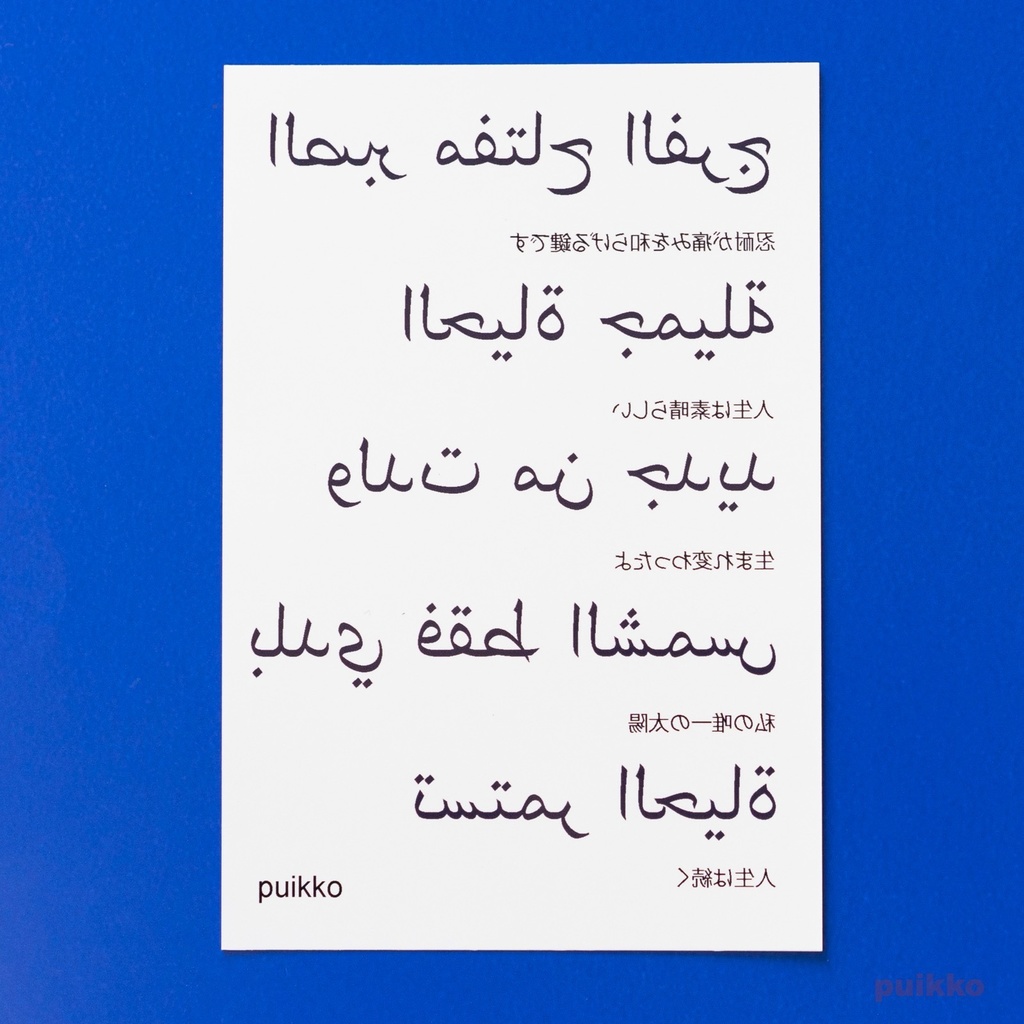 الصبر مفتاح الفرج
忍耐が痛みを和らげる鍵です
الحياة جميلة
人生は素晴らしい
ولدت من جديد
生まれ変わったよ
بلدي فقط الشمس
私の唯一の太陽
تستمر الحياة
人生は続く
puikko
puikko